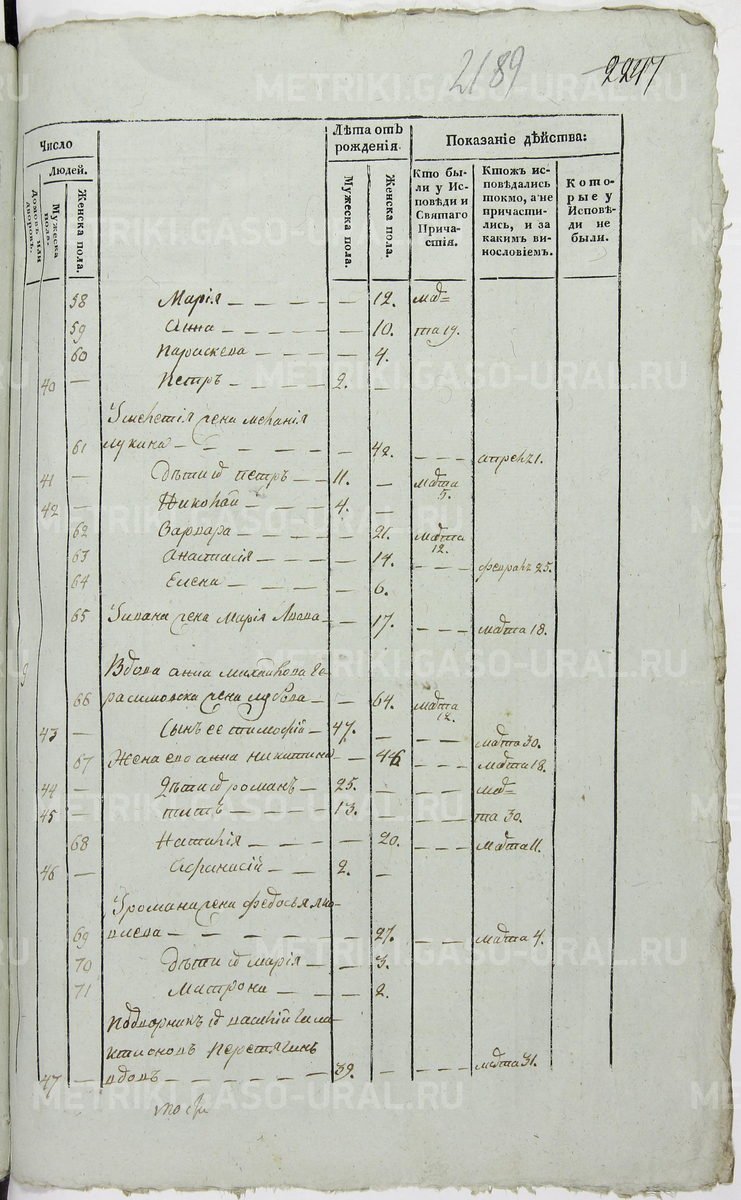 2189 2247
Число
Людей.
Домовъ или дворовъ.
Мужеска пола.
Женска пола.
Лѣта отъ рожденія.
Мужеска пола.
Женска пола.
Показаніе дѣйства:
Кто бы-
ли у Ис-
повѣди и
Святаго
Прича-
стія.
Ктожъ ис-
повѣдались
токмо, а не
причасти-
лись, и за
какимъ ви-
нословіемъ.
Кото-
рые у
Исповѣ-
ди не
были.
58 Марія — 12. мар-
59 Анна — 10. та 19.
60 Параскева — 4.
40 Петръ — 2.
жена Меланія
61 Лукина — 42. апрел 21.
41 Дѣти Петръ — 11. марта 5.
42 Николай — 4.
62 Варвара — 21. марта 12.
63 Анастасія — 14. феврал 25.
64 Елена — 6.
65 У Ивана жена Марія — 17. марта 18.
9
Вдова Анна Ге-
66 расимовска жена — 64. марта 12.
43 Сынъ ее Тимофей — 47. марта 30.
67 Жена его Анна Никитина — 46 марта 18.
44 Дѣти Романъ — 25. мар-
45 Титъ — 13. та 30.
68 Наталія — 20. марта 11.
46 Афанасій — 2.
У Романа жена Федосья Яко-
69 влева — 27. марта 4.
70 Дѣти Марія — 3.
71 Матрона — 2.
Подворникъ Василій Гала-
ктионовъ Перетягинъ
47 вдовъ — 39. марта 31.
METRIKI.GASO-URAL.RU